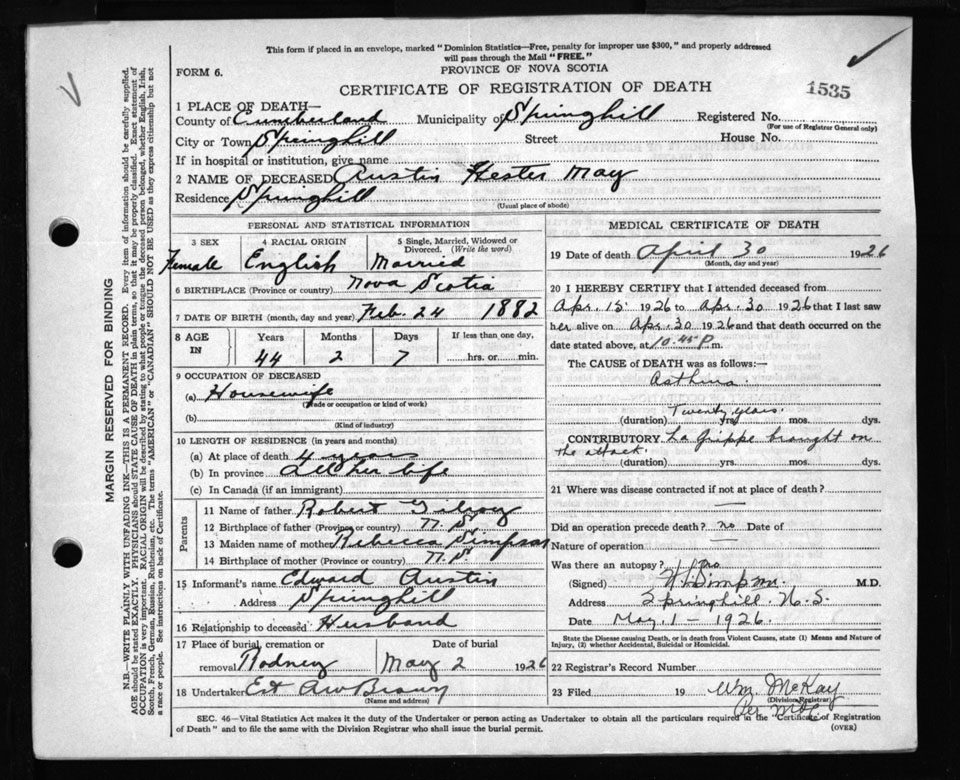 This form if placed in an envelope, marked "Dominion Statistics—Free, penalty for improper use $300," and properly addressed
will pass through the Mail "FREE."
FORM 6.
PROVINCE OF NOVA SCOTIA
CERTIFICATE OF REGISTRATION OF DEATH
1535
1 PLACE OF DEATH—
County of Cumberland Municipality of Springhill Registered No.
(For use of Registrar General only)
City or Town Springhill Street House No.
If in hospital or institution, give name
2 NAME OF DECEASED Austin Hester May
Residence Springhill
(Usual place of abode)
PERSONAL AND STATISTICAL INFORMATION
3 SEX 4 RACIAL ORIGIN 5 Single, Married, Widowed or Divorced. (Write the word)
Female English Married
6 BIRTHPLACE (Province or country) Nova Scotia
7 DATE OF BIRTH (month, day and year) Feb. 24 1882
8 AGE IN Years Months Days If less than one day,
44 2 7 hrs. or min.
9 OCCUPATION OF DECEASED
(a) Housewife
(Trade or occupation or kind of work)
(b)
(Kind of industry)
10 LENGTH OF RESIDENCE (in years and months)
(a) At place of death 4 years
(b) In province All her life
(c) In Canada (if an immigrant)
Parents
11 Name of father Robert Gilroy
12 Birthplace of father (Province or country) N. S.
13 Maiden name of mother Rebecca Simpson
14 Birthplace of mother (Province or country) N. S.
15 Informant's name Edward Austin
Address Springhill
16 Relationship to deceased Husband
17 Place of burial, cremation or Date of burial
removal Rodney May 2 1926
18 Undertaker Est Aw Brown
(Name and address)
MEDICAL CERTIFICATE OF DEATH
19 Date of death April 30 1926
(Month, day and year)
20 I HEREBY CERTIFY that I attended deceased from
Apr. 15 1926 to Apr. 30 1926 that I last saw
her alive on Apr. 30 1926 and that death occurred on
date stated above, at 10.45 P. m.
The CAUSE OF DEATH was as follows:—
Asthma.
Twenty years.
(duration) yrs. mos. dys.
CONTRIBUTORY La Grippe brought on
the attack.
(duration) yrs. mos. dys.
21 Where was disease contracted if not at place of death?
—
Did an operation precede death? no Date of
Nature of operation —
Was there an autopsy? No
(Signed) Simpson. M.D.
Address Springhill. N. S.
Date May. 1— 1926.
State the Disease causing Death, or in death from Violent Causes, state (1) Means and Nature of
Injury, (2) whether Accidental, Suicidal or Homicidal.
22 Registrar's Record Number
23 Filed 19 Wm McKay
(Division Registrar)
Per
SEC. 46—Vital Statistics Act makes it the duty of the Undertaker or person acting as Undertaker to obtain all the particulars required in the "Certificate of Registration
of Death" and to file the same with the Division Registrar who shall issue the burial permit. (OVER)
MARGIN RESERVED FOR BINDING
N.B.—WRITE PLAINLY WITH UNFADING INK—THIS IS A PERMANENT RECORD. Every item of information should be carefully supplied.
AGE should be stated EXACTLY. PHYSICIANS should STATE CAUSE OF DEATH in plain terms, so that it may be properly classified. Exact statement of
OCCUPATION is very important. RACIAL ORIGIN will be described by stating to what people or tongue the deceased person belonged, whether English, Irish,
Scotch, French, German, Russian, Ruthenian, etc. The terms "AMERICAN" or "CANADIAN" SHOULD NOT BE USED as they express citizenship but not
a race or people. See instructions on back of Certificate.